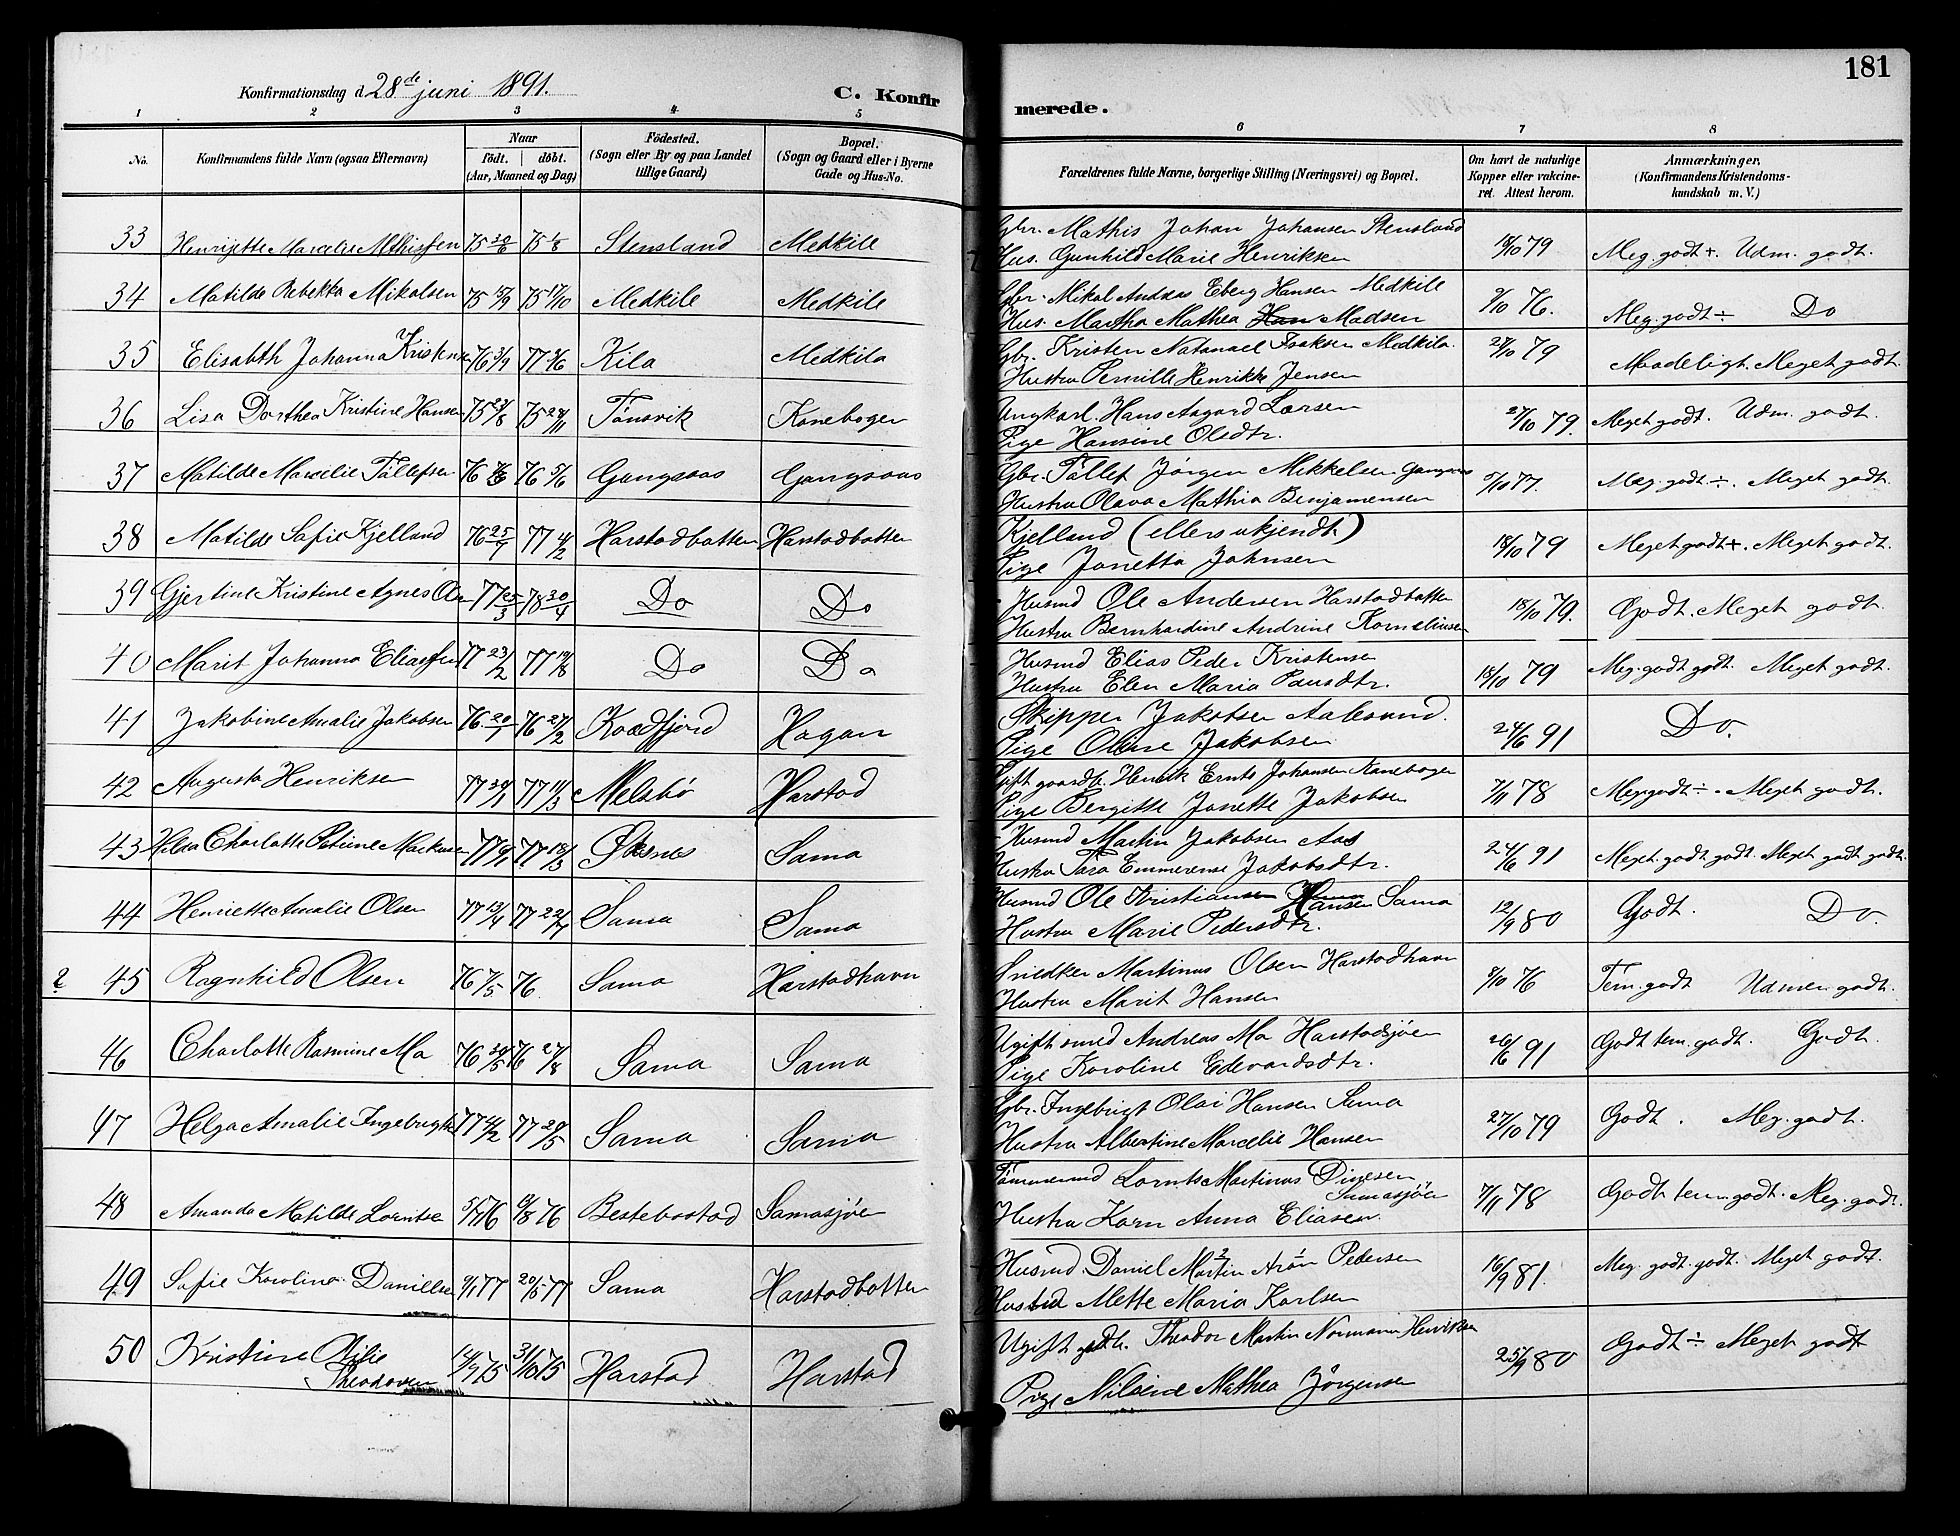 181
Konfirmationsdag d 28de juni 1891.
C. Konfirmerede.
1 2 3 4 5 6 7 8
No.
Konfirmandens fulde Navn (ogsaa Efternavn)
Naar
födt. döbt.
(Aar, Maaned og Dag)
Födested.
(Sogn eller By og paa Landet
tillige Gaard)
Bopæl.
(Sogn og Gaard eller i Byerne
Gade og Hus-No.
Forældrenes fulde Navne, borgerlige Stilling (Næringsvei) og Bopæl.
Om havt de naturlige
Kopper eller vakcine-
ret. Attest herom.
Anmærkninger.
(Konfirmandens Kristendoms-
kundskab m. V.)
33 Henrijette Marcelie Mathissen 75 30/6 75 1/8 Stensland Medkile Gbr. Mathis Johan Johansen Stensland 18/10 79 Meg. godt +. Udm. godt.
Hus. Gunhild Marie Henriksen
34 Matilde Rebekka Mikalsen 75 15/9 75 17/10 Medkile Medkile Gbr. Mikal Andreas Eberg Hansen Medkile 9/10 76. Meg. godt ÷ Do
Hus. Martha Mathea Madsen
35 Elisabth Johanna Kristensen 76 3/9 77 3/6 Kila Medkila Gbr. Kristen Natanael Isaksen Medkila. 27/10 79 Maadeligt. Meget godt
Hustru Pernille Henrikke Jensen
36 Lisa Dorthea Kristine Hansen 75 23/8 75 24/11 Tönsvik Kanebogen Ungkarl. Hans Aagard Larsen 27/10 79. Meget godt. Udm. godt.
Pige Hansine Olsdtr.
37 Matilde Marcelie Töllefsen 76 76 5/6 Gangsaas Gangsaas Gbr. Töllef Jörgen Mikkelsen Gangsaas 5/10 77. Meg. godt ÷. Meget godt.
Hustru Olava Mathia Benjamensen
38 Matilde Sofie Kjelland 76 25/9 77 4/2 Harstadbotten Harstadbotten Kjelland (ellers ukjendt) 18/10 79 Meget godt +. Meget godt.
Pige Janetta Johnsen
39 Gjertine Kristine Agnes Olsen 77 25/3 78 30/4 Do Do Husmd Ole Andersen Harstadbotten 18/10 79. Godt. Meget godt.
Hustru Bernhardine Andrine Korneliusen
40 Marit Johanna Eliassen 77 23/2 77 19/8 Do Do Husmd Elias Peder Kristensen 18/10 79 Meg. godt godt. Meget godt.
Hustru Elen Maria Paulsdtr.
41 Jakobine Amalie Jakobsen 76 20/1 76 27/2 Kvædfjord Hagan Skipper Jakobsen Aalesund. 24/6 91 Do.
Pige Oline Jakobsen
42 Augusta Henriksen 77 30/1 77 11/3 Melsbö Harstad Gift gaardb. Henrik Ernts Johansen Kanebogen 7/11 78 Meg. godt ÷. Meget godt.
Pige Bergitte Janette Jakobsen
43 Charlotte Petrine Markusen 77 6/1 77 18/3 Öksnes Sama Husmd Martin Jakobsen Aas 24/6 91 Meget. godt godt. Meget godt godt.
Hustru Sara Emmerense Jakobsdtr.
44 Henriette Amalie Olsen 77 13/4 77 22/7 Sama Sama Husmd Ole Kristiansen Hansen Sama 12/9 80 Godt. Do.
Hustru Marie Pedersdtr.
? 45 Ragnhild Olsen 76 7/5 76 Sama Harstadhavn Snedker Martinus Olsen Harstadhavn 8/10 76 Tem. godt Udmer. godt.
Hustru Marit Hansen
46 Charlotte Rasmine Mo 76 30/5 76 27/8 Sama Sama Ugift smed Andreas Mo Harstadsjöen 26/6 91 Godt tem. godt. Godt.
Pige Karoline Edevardsdtr.
47 Helga Amalie Ingebrigtsen 77 4/2 77 29/5 Sama Sama Gbr. Ingebrigt Olai Hansen Sama 27/10 79 Godt. Meg. godt.
Hustru Albertine Marcelie Hansen
48 Amanda Matilde Lorntsen 5/1 76 6/8 76 Bestebostad Samasjöen Tömmermd Lornts Martinus Dinesen 7/11 78 Godt tem. godt. Meg. godt.
Samasjöen
Hustru Karn Anna Eliasen.
49 Sofie Karolina Danielsen 9/1 77 20/5 77 Sama Harstadbotten Husmd. Daniel Martin Arön Pedersen 16/9 81. Meg. godt. godt. Meget godt.
Hustru Mette Maria Karlsen
50 Kristine Olilie 14/9 75 31/10 75 Harstad Harstad Ugift gdbr. Theodor Martin Normann Henriksen 25/9 80 Godt ÷ Meget godt
Theodorsen
Pige Nilsine Mathea Jörgensen